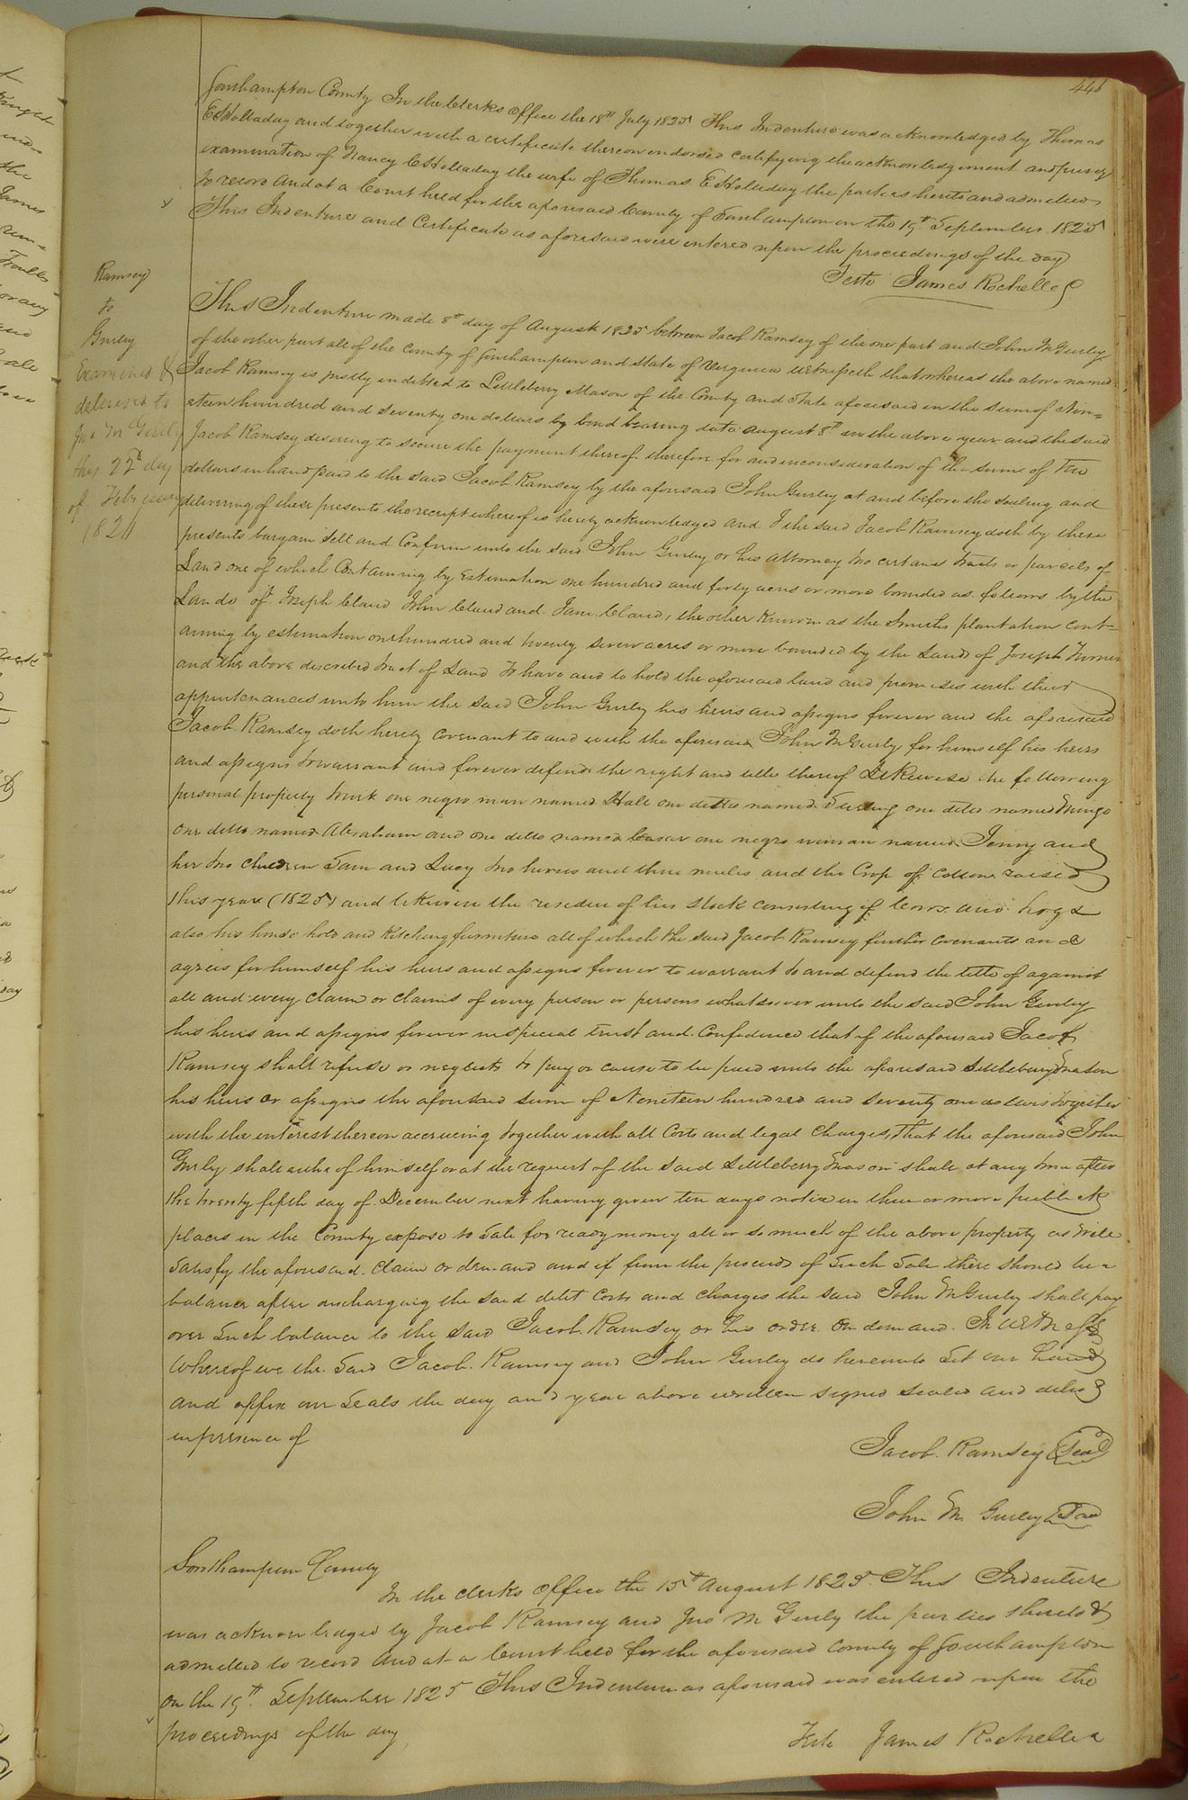 446
Southampton County In the Clerks Office the 18th July 1825 This Indenture was acknowledged by Thomas
E Holladay and together with a certificate thereon endorsed certifying the acknowledgement and privy
examination of Nancy C Holladay the wife of Thomas E Holladay the parties hereto and admitted
to record And at a Court held for the aforesaid County of Southampton on the 19th September 1825
This Indenture and Certificate as aforesaid were entered upon the proceedings of the day
Teste James Rochelle
Ramsey
to
Gurley
Examined &
delivered to
Jno M Gurley
this 22d day
of February
182
This Indenture made 8th day of August 1825 between Jacob Ramsey of the one part and John M Gurley
of the other part all of the County of Southampton and State of Virginia Witnesseth that whereas the above named
Jacob Ramsey is justly indebted to Littleberry Mason of the County and State aforesaid in the sum of Nine=
=teen hundred and seventy one dollars by bond bearing date August 8th in the above year and the said
Jacob Ramsey desiring to secure the payment thereof therefore for and in consideration of the sum of Two
dollars in hand paid to the said Jacob Ramsey by the aforesaid John Gurley at and before the sealing and
delivering of these presents the receipt whereof is hereby acknowledged and I the said Jacob Ramsey doth by these
presents bargain sell and Confirm unto the said John Gurley or his attorney two certain tracts or parcels of
Land one of which Containing by Estimation one hundred and forty acres or more bounded as follows by the
Lands of Joseph Claud John Claud and Jane Claud, the other known as the Smiths plantation cont=
aining by estimation one hundred and twenty seven acres or more bounded by the Lands of Joseph Turner
and the above described tract of Land To have and to hold the aforesaid land and premises with their
appurtenances unto him the said John Gurley his heirs and assigns forever and the aforesaid
Jacob Ramsey doth hereby covenant to and with the aforesaid John M Gurley for himself his heirs
and assigns to warrant and forever defend the right and title thereof Likewise the following
personal property to wit one negro man named Hall one ditto named one ditto named Mingo
One ditto named Abraham and one ditto named Ceasar one negro woman named Jenny and
her two children Sam and Lucy two horses and three mules and the Crop of Cotton raised
this year (1825) and likewise the residue of his stock consisting of Cows and hogs &
also his house hold and Kitching furniture all of which the said Jacob Ramsey further covenants and
agrees for himself his heirs and assigns forever to warrant to and defend the title of against
all and every claim or claims of every person or persons whatsoever unto the said John Gurley
his heirs and assigns forever in special trust and Confidence that if the aforesaid Jacob
Ramsey shall refuse or neglects to pay or cause to be paid unto the aforesaid Littleberry Mason
his heirs or assigns the aforesaid sum of Nineteen hundred and seventy one dollars together
with the interest thereon accrueing together with all Costs and legal Charges, That the aforesaid John
Gurley shall either of himself or at the request of the said Littleberry Mason shall at any time after
the twenty fifth day of December next having given ten days notice in three or more public
places in the County expose to sale for ready money all or so much of the above property as will
satisfy the aforesaid claim or demand and if from the proceeds of Such Sale there should be a
balance after discharging the said debt Costs and Charges the said John M Gurley shall pay
over Such balance to the said Jacob Ramsey or his order On demand. In Witness
Whereof we the Said Jacob Ramsey and John Gurley do hereunto Set our hand
and affix our Seals the day and year above written signed sealed and deliv
in presence of
Jacob Ramsey Seal
John M Gurley Seal
Southampton County
In the clerks Office the 15th August 1825 This Indenture
was acknowledged by Jacob Ramsey and Jno M Gurley the parties thereto &
admitted to record And at a Court held for the aforesaid County of Southampton
on the 19th September 1825 This Indenture as aforesaid was entered upon the
proceedings of the day
Teste James Rochelle